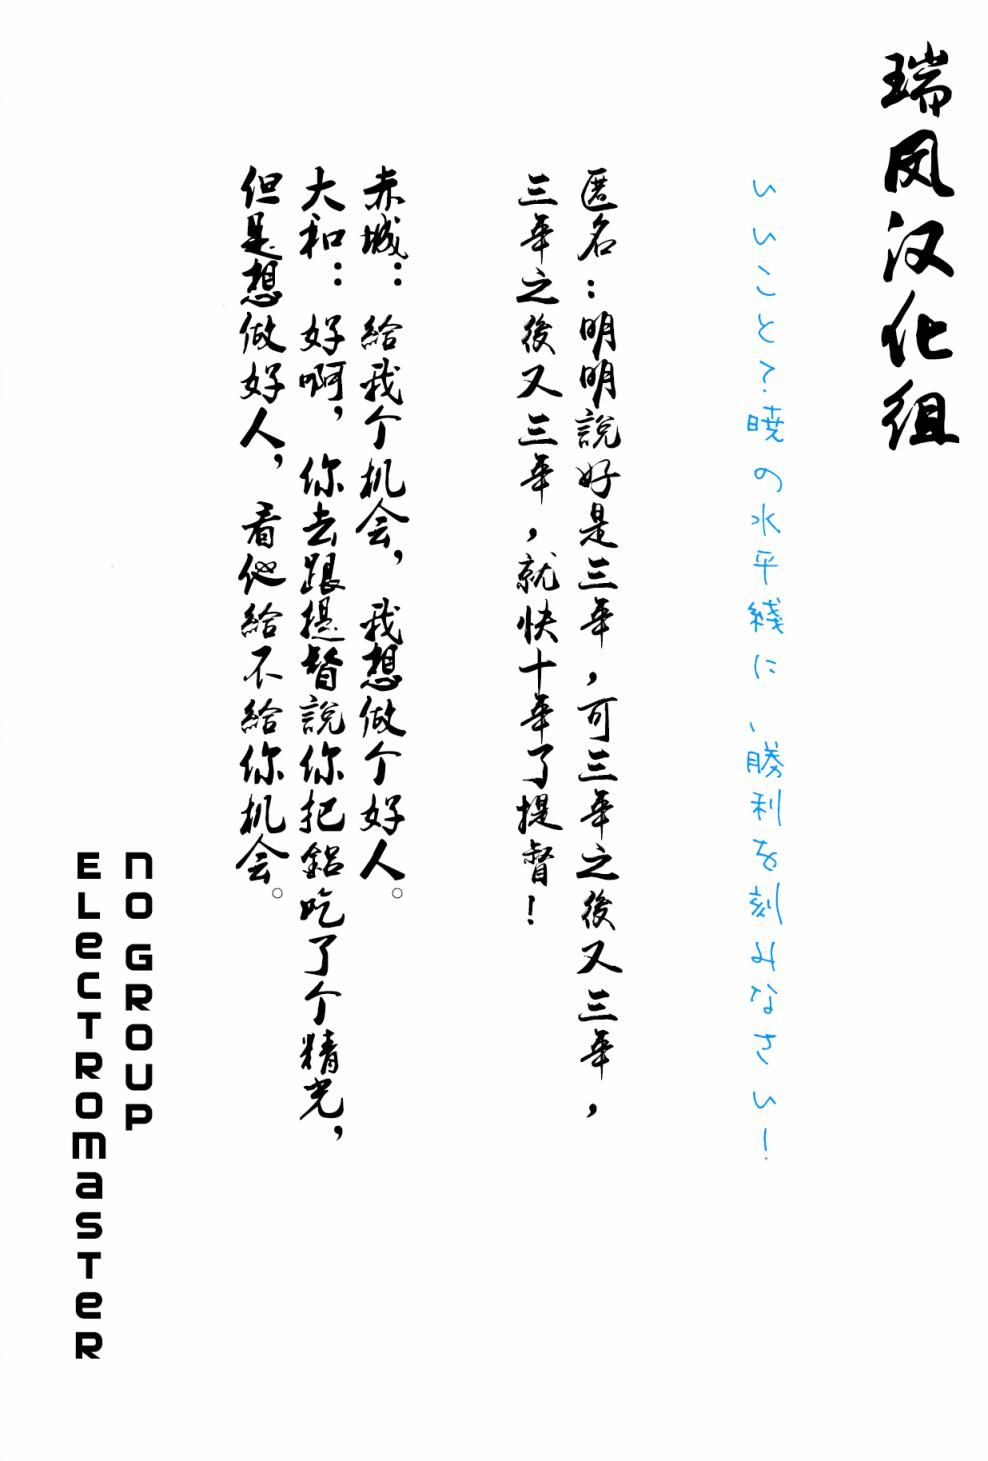 瑞凤汉化组
いいこと？暁の水平綫に、勝利を刻みなさい！
匿名：明明說好是三年，可三年之後又三年，
三年之後又三年，就快十年了提督！
赤城：給我个机会，我想做个好人。
大和：好啊，你去跟提督說你把鋁吃了个精光，
但是想做好人，看他給不給你机会。
NO GROUP
ELECTROMASTER